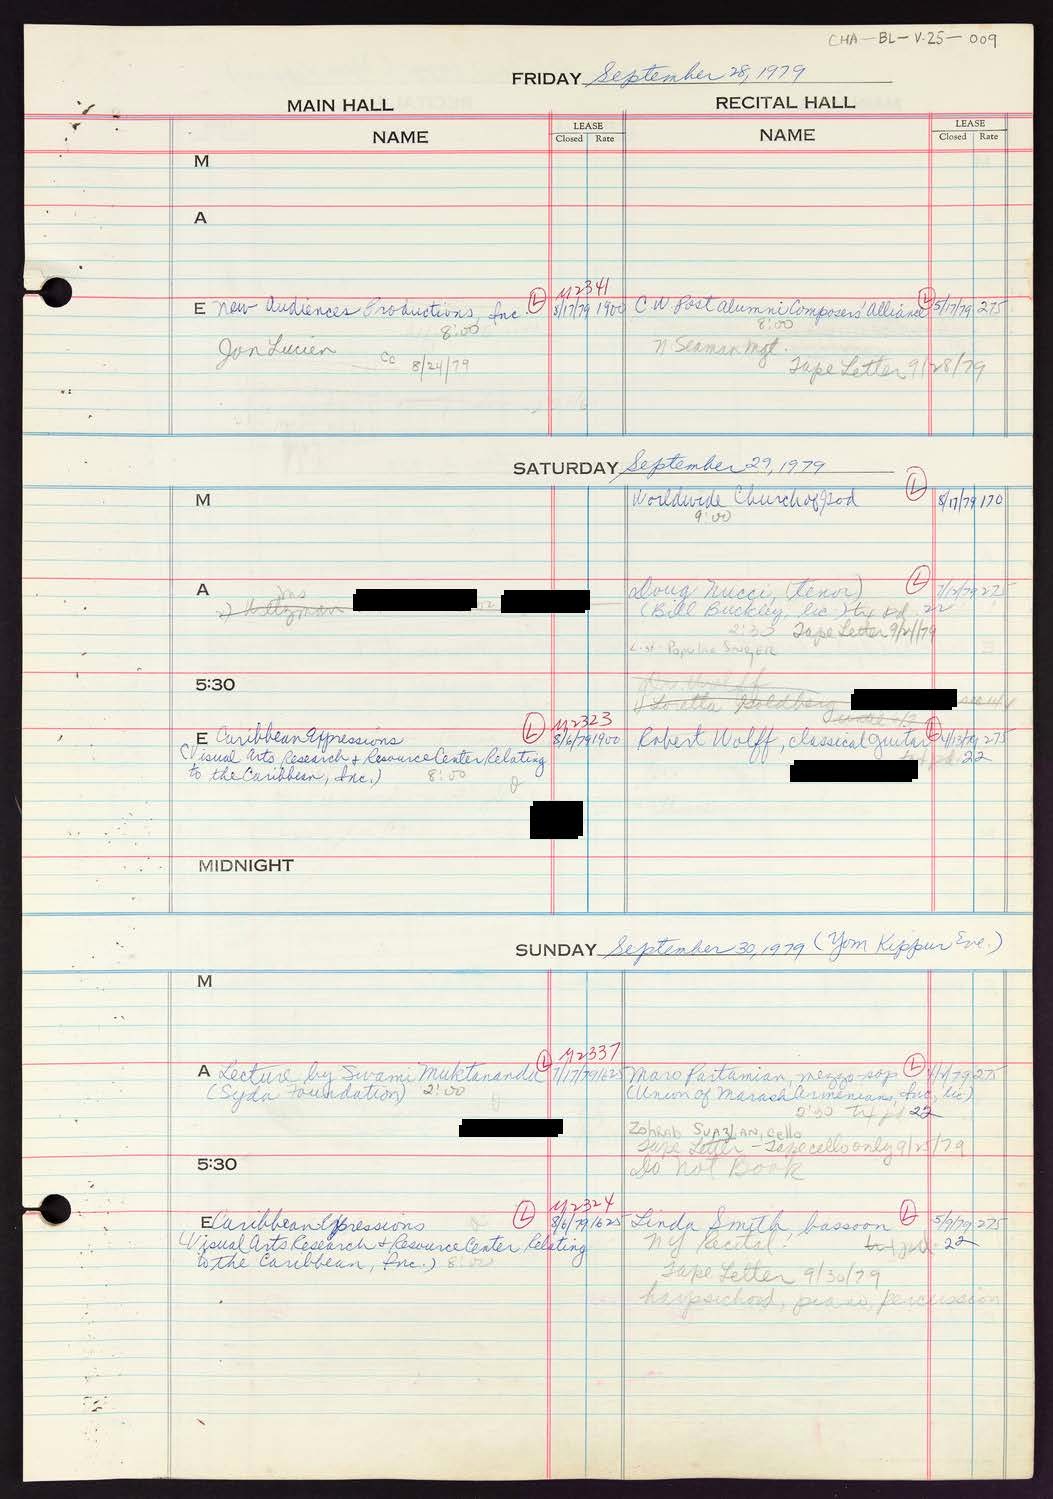 CHA-BL-V.25-009
FRIDAY September 28, 1979
MAIN HALL
RECITAL HALL
NAME
LEASE
Closed Rate
NAME
LEASE
Closed Rate
M
A
M2341
E New Audiences Productions, Inc. L 8/17/79 1900
8:00
Jon Lucien cc 8/24/79
C W Post Alumni Composers' Alliance L 5/17/79 275
8:00
N Seaman Mgt.
Tape Letter 9/28/79
SATURDAY September 29, 1979
M
Worldwide Church of God L 8/17/79 170
9:00
A
2) Holtzman
Doug Nucci, (tenor) L 7/12/79 275
(Bill Buckley, lic.) 22
2:30 Tape Letter 9/21/79
List Popular Singer
5:30
Loretta Goldberg
M2323
E Caribbean Expressions L 8/6/79 1900
(Visual Arts, Research & Resource Center Relating
to the Caribbean, Inc.) 8:00
Robert Wolff, classical guitar L 4/13/79 275
22
MIDNIGHT
SUNDAY September 30, 1979 (Yom Kippur Eve.)
M
M2337
A Lecture by Swami Muktananda L 7/17/79 1625
(Syda Foundation) 2:00
Maro Partamian, mezzo-sop L 275
(Union of Marash Armenians, Inc., lic)
2:30 22
Zohrab cello
Tape Letter - Tape cello only 9/25/79
5:30
Do Not Book
M2324
E Caribbean Expressions L 8/6/79 1625
(Visual Arts Research & Resource Center Relating
to the Caribbean, Inc.) 8:00
Linda Smith, bassoon L 5/9/79 275
NY Recital. 22
Tape Letter 9/30/79
harpsichord, piano, percussion